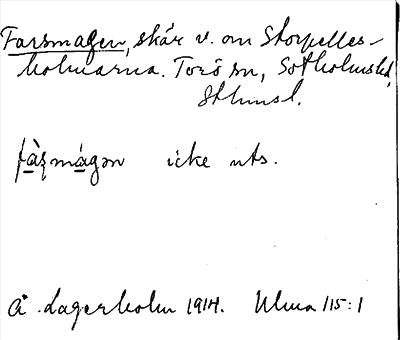 Farsmagen, skär v. om Storpelles-
holmarna. Torö sn, Sotholms hd,
Sthmsl.
fàʂmágən icke uts.
Å. Lagerholm 1914. Ulma 115:1